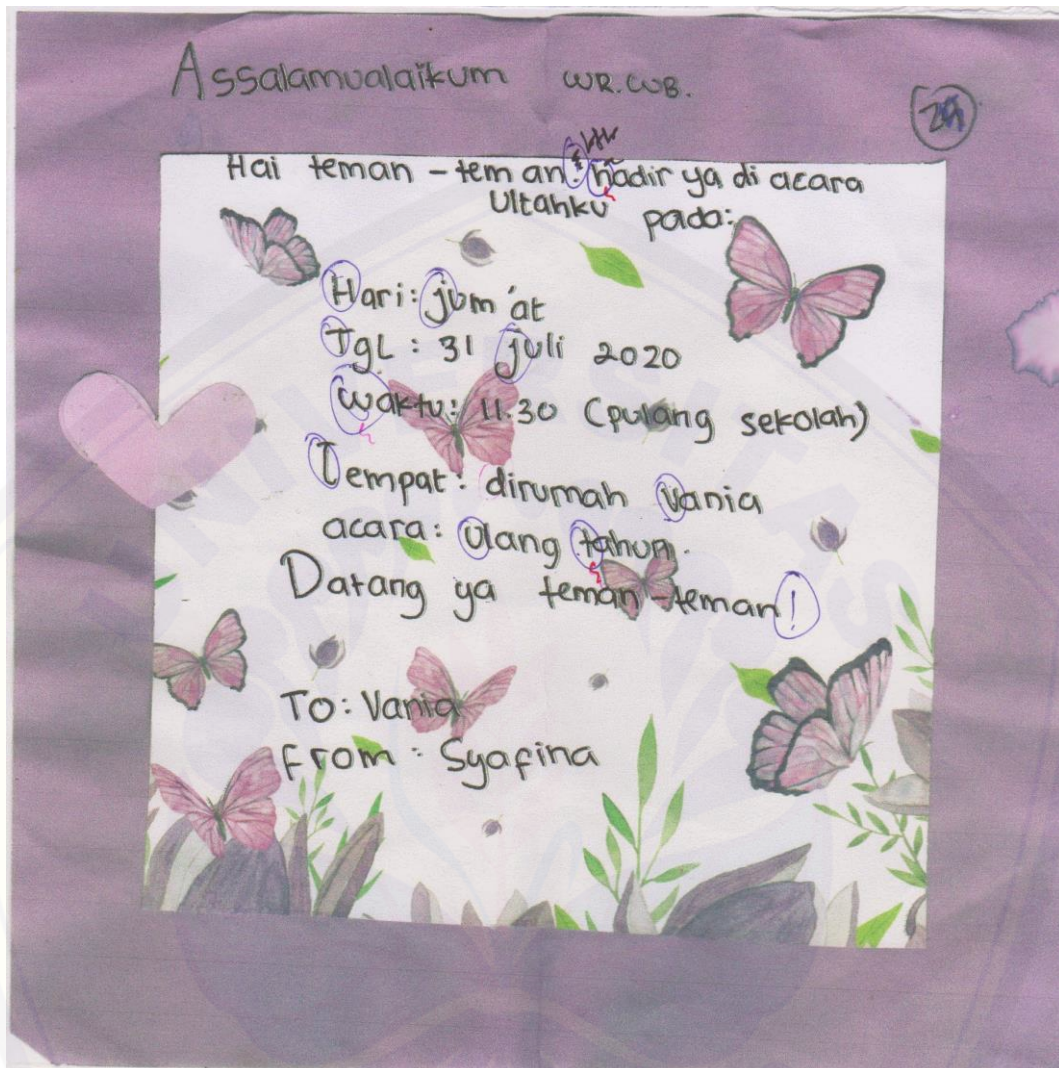 Assalamualaikum WR. WB.
29
Hai teman - teman! hadir ya di acara
Ultahku pada:
Hari: jum'at
Tgl : 31 juli 2020
Waktu: 11.30 (pulang sekolah)
Tempat: dirumah Vania
acara: Ulang tahun.
Datang ya teman-teman!
To: Vania
From: Syafina
UNIVERSITAS